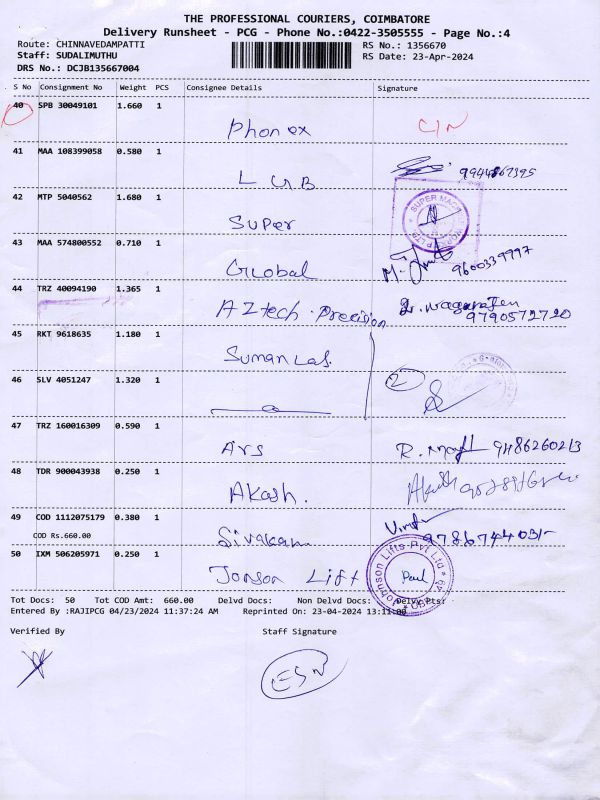 THE PROFESSIONAL COURIERS, COIMBATORE
Delivery Runsheet - PCG - Phone No.:0422-3505555 - Page No.:4
Route: CHINNAVEDAMPATTI RS No.: 1356670
Staff: SUDALIMUTHU RS Date: 23-Apr-2024
DRS No.: DCJB135667004
S No Consignment No Weight PCS Consignee Details Signature
40 SPB 30049101 1.660 1
Phonex
41 MAA 108399058 0.580 1
LGB
42 MTP 5040562 1.680 1
Super SUPER
43 MAA 574800552 0.710 1
Global 9600339997
44 TRZ 40094190 1.365 1
AZtech Precision 9790572720
45 RKT 9618635 1.180 1
Suman Lab.
46 SLV 4051247 1.320 1
2
47 TRZ 160016309 0.590 1
Ars R. 9486260213
48 TDR 900043938 0.250 1
Akash.
49 COD 1112075179 0.380 1
COD Rs.660.00
Sivakami
50 IXM 506205971 0.250 1
Jonson Lift Johnson Lifts Pvt Ltd Paul
Tot Docs: 50 Tot COD Amt: 660.00 Delvd Docs: Non Delvd Docs: Delvy Pts:
Entered By :RAJIPCG 04/23/2024 11:37:24 AM Reprinted On: 23-04-2024 13:11:00
Verified By Staff Signature
ESN